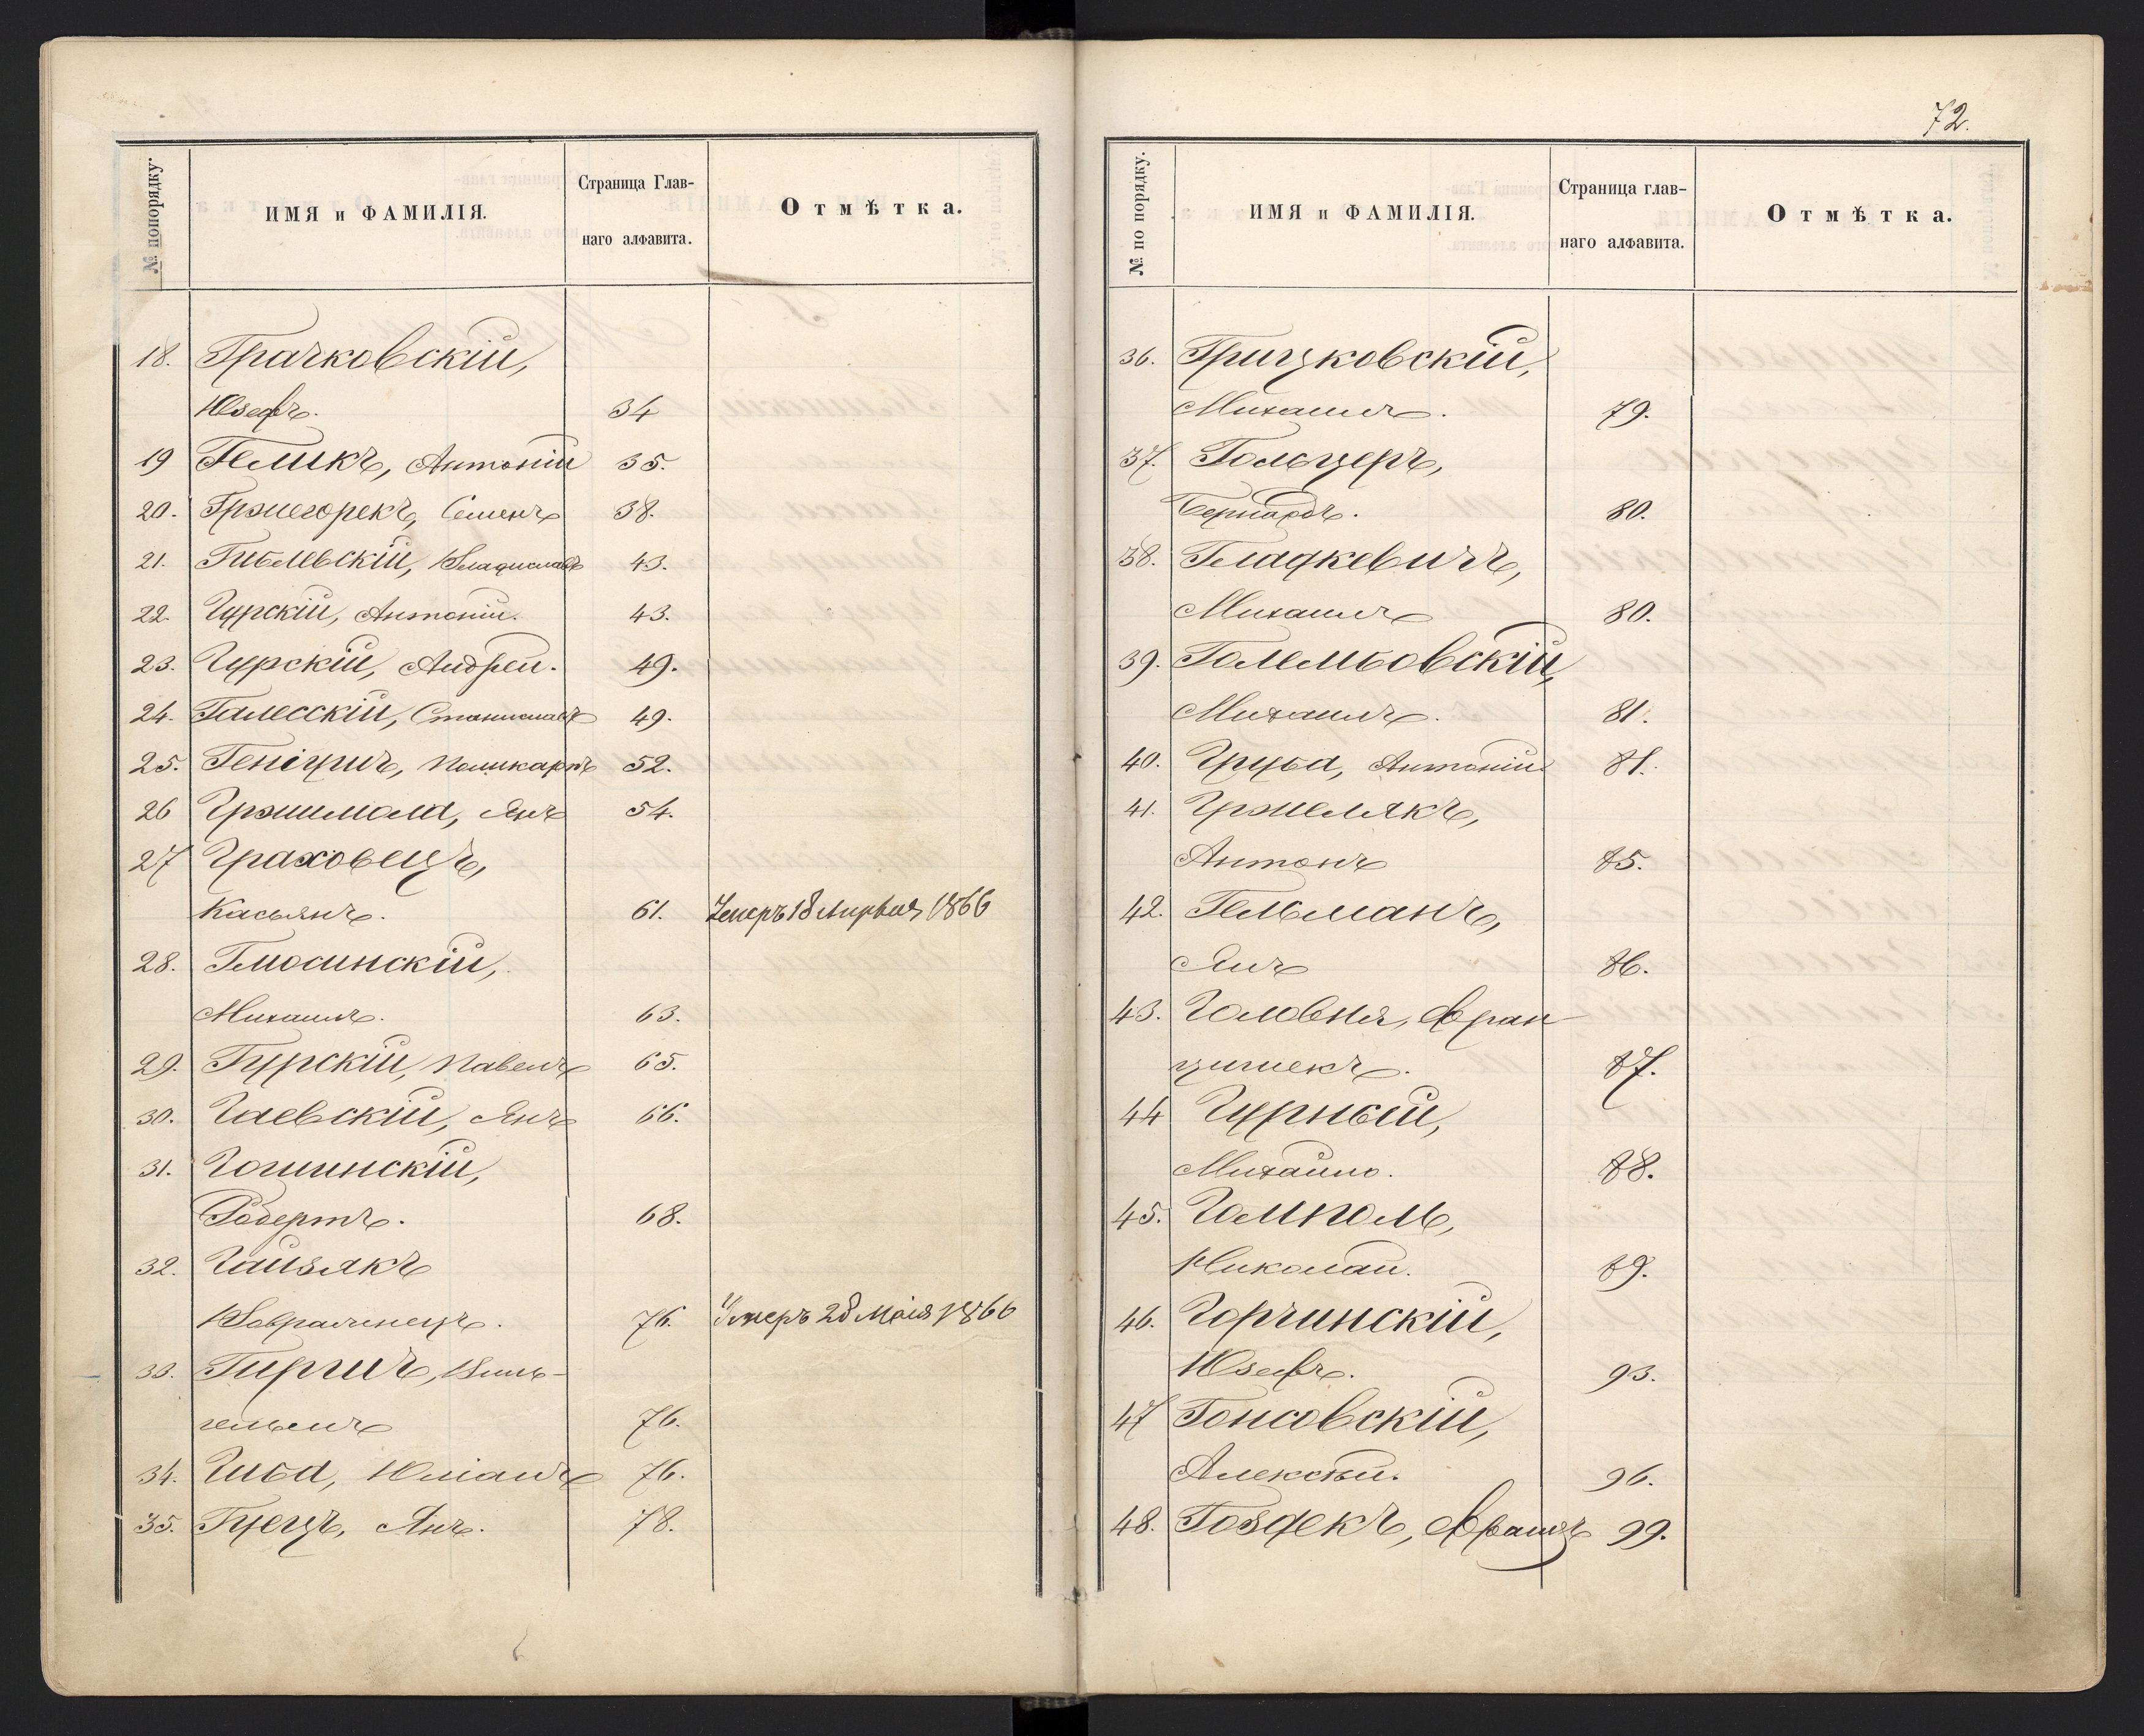 № попорядку.
ИМЯ и ФАМИЛІЯ.
Страница Глав-
наго алфавита.
Отмѣтка.
18. Грачковскій,
Юзефъ. 34
19 Геликъ, Антоній 35.
20. Гржегорекъ, Семенъ 38.
21. Гиблевскій, Владиславъ 43.
22. Гурскій, Антоній. 43.
23. Гурскій, Андрей. 49.
24. Галесскій, Станиславъ 49.
25. Поликарпъ 52.
26 Гржимала, Янъ 54.
27 Граховецъ,
Касьянъ. 61. Умеръ 18 Апрѣля 1866
28. Глосинскій,
Михаилъ. 63.
29. Гурскій, Павелъ 65.
30. Гаевскій, Янъ 66.
31. Гошинскій,
Робертъ. 68.
32. Гайзякъ
Вавржинецъ. 76. Умеръ 28 Маія 1866
33. Виль-
гельмъ 76.
34. Юліанъ 76.
35. Гуецъ, Янъ. 78.
72.
№ по порядку.
ИМЯ и ФАМИЛІЯ.
Страница глав-
наго алфавита.
Отмѣтка.
36. Грицковскій,
Михаилъ. 79.
37. Гольцеръ,
Бернардъ. 80.
38. Гладкевичъ,
Михаилъ 80.
39. Голембовскій,
Михаилъ. 81.
40. Груба, Антоній 81.
41. Гржелякъ,
Антонъ 85.
42. Гельманъ,
Янъ 86.
43. Головня, Фран
цишекъ. 87.
44 Гурный,
Михайло. 88.
45. Гамполь,
Николай. 89.
46. Горчинскій,
Юзефъ. 93.
47 Гонсовскій,
Алексѣй. 96.
48. Гоздекъ, Францъ 99.